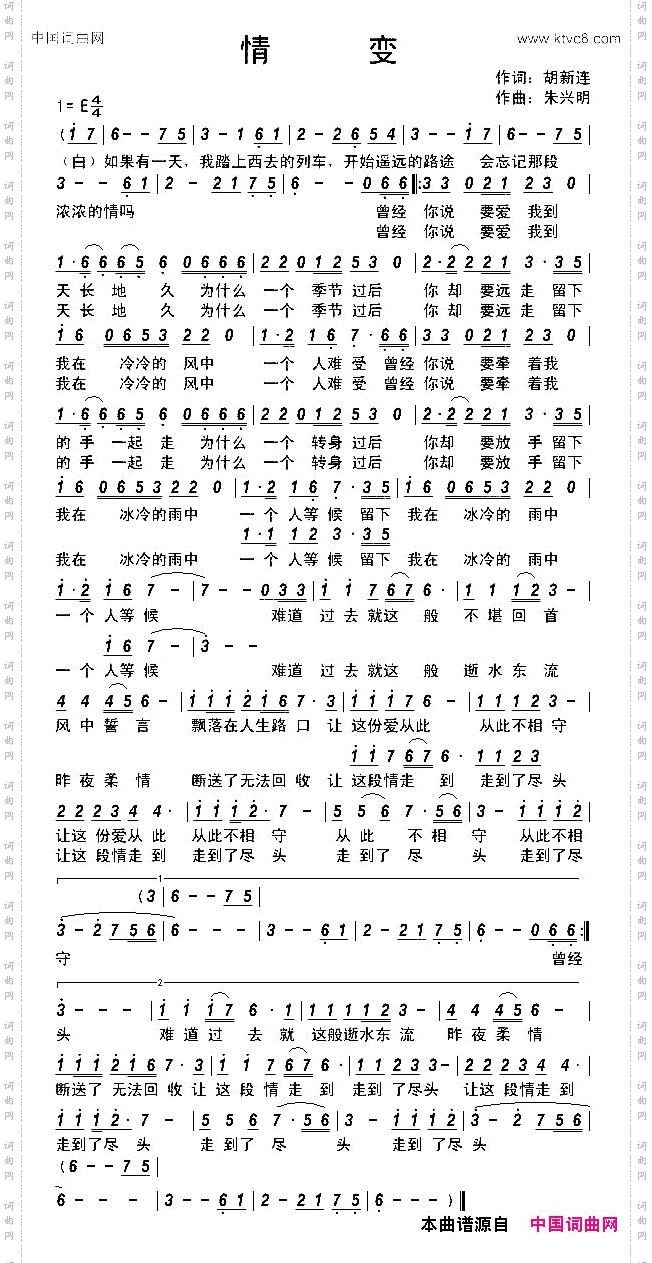 中国词曲网
情 变
www.ktvc8.com
作词：胡新连
作曲：朱兴明
1=E 4/4
(i 7 | 6 - - 7 5 | 3 - 1 6 1 | 2 - 2 6 5 4 | 3 - - 1 7 |
(白)如果有一天，我踏上西去的列车，开始遥远的路途 会忘记那段
3 - - 6 1 | 2 - 2 1 7 5 | 6 - - 0 6 6 ‖: 3 3 0 2 1 2 3 0 |
浓浓的情吗 曾经 你说 要爱 我到
曾经 你说 要爱 我到
1 · 6 6 6 5 6 0 6 6 6 | 2 2 0 1 2 5 3 0 | 2 · 2 2 2 1 3 · 3 5 |
天长 地 久 为什么 一个 季节 过后 你却 要远走 留下
天长 地 久 为什么 一个 季节 过后 你却 要远走 留下
1 6 0 6 5 3 2 2 0 | 1 · 2 1 6 7 · 6 6 | 3 3 0 2 1 2 3 0 |
我在 冷冷的 风中 一个 人难 受 曾经 你说 要牵 着我
我在 冷冷的 风中 一个 人难 受 曾经 你说 要牵 着我
1 · 6 6 6 5 6 0 6 6 6 | 2 2 0 1 2 5 3 0 | 2 · 2 2 2 1 3 · 3 5 |
的 手 一起 走 为什么 一个 转身 过后 你却 要放 手 留下
的 手 一起 走 为什么 一个 转身 过后 你却 要放 手 留下
1 6 0 6 5 3 2 2 0 | 1 · 2 1 6 7 · 3 5 | 1 6 0 6 5 3 2 2 0 |
我在 冰冷的雨中 一个 人等 候 留下 我在 冰冷的 雨中
1 · 1 1 2 3 · 3 5
我在 冰冷的雨中 一个 人等 候 留下 我在 冰冷的 雨中
1 · 2 1 6 7 - | 7 - 0 3 3 | 1 1 7 6 7 6 | 1 1 1 2 3 - |
一个 人等 候 难道 过 去就这 般 不 堪 回 首
1 6 7 - | 3 - -
一个 人等 候 难道 过 去就这 般 逝 水 东 流
4 4 4 5 6 - | 1 1 1 2 1 6 7 · 3 | 1 1 1 7 6 - | 1 1 1 2 3 - |
风 中 誓 言 飘落在人生路 口 让 这份爱从此 从此不相 守
1 1 7 6 7 6 · 1 1 2 3
昨 夜 柔 情 断送了无法回 收 让 这段情走 到 走到了尽 头
2 2 2 3 4 4 · | 1 1 1 1 2 · 7 - | 5 5 6 7 · 5 6 | 3 - 1 1 1 2 |
让这 份爱从 此 从此不相 守 从 此 不 相 守 从此不相
让这 段情走 到 走到了尽 头 走 到了 尽 头 走到了尽
1
(3 | 6 - - 7 5 |
3 - 2 7 5 6 | 6 - - - | 3 - - 6 1 | 2 - 2 1 7 5 | 6 - - 0 6 6 :‖
守 曾经
2
3 - - - | 1 1 1 7 6 · 1 | 1 1 1 1 2 3 - | 4 4 4 5 6 - |
头 难 道 过 去 就 这般逝水东 流 昨 夜 柔 情
1 1 1 2 1 6 7 · 3 | 1 1 7 6 7 6 · | 1 1 2 3 3 - | 2 2 2 3 4 4 · |
断送了 无法回 收 让 这 段 情 走 到 走到 了尽头 让这 段情走 到
1 1 1 1 2 · 7 - | 5 5 6 7 · 5 6 | 3 - 1 1 1 2 | 3 - 2 7 5 6 |
走到了尽 头 走 到了 尽 头 走到 了尽 头
(6 - - 7 5 |
6 - - - | 3 - - 6 1 | 2 - 2 1 7 5 | 6 - - - ) ‖
本曲谱源自 中国词曲网